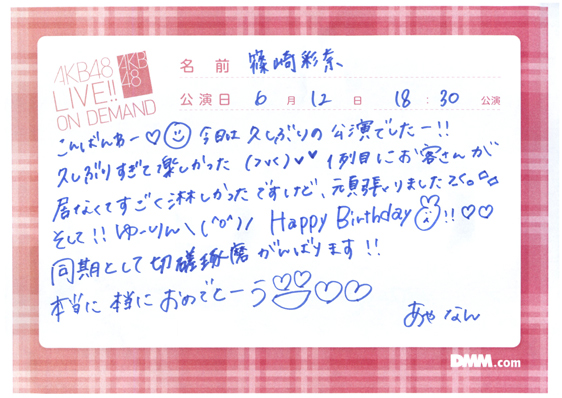 AKB48
LIVE!!
ON DEMAND
AKB
48
名 前 篠崎彩奈
公演日 6 月 12 日 18 : 30 公演
こんばんわー♡☺ 今日は久しぶりの公演でしたー!!
久しぶりすぎて楽しかった(>v<)♥♥ 1列目にお客さんが
居なくてすごく淋しかったですけど、頑張りましたよ。
そして!!ゆーりん\(^o^)/ Happy Birthday!!♡♡
同期として切磋琢磨がんばります!!
本当に本当におめでとーう♡♡
あやなん
DMM.com